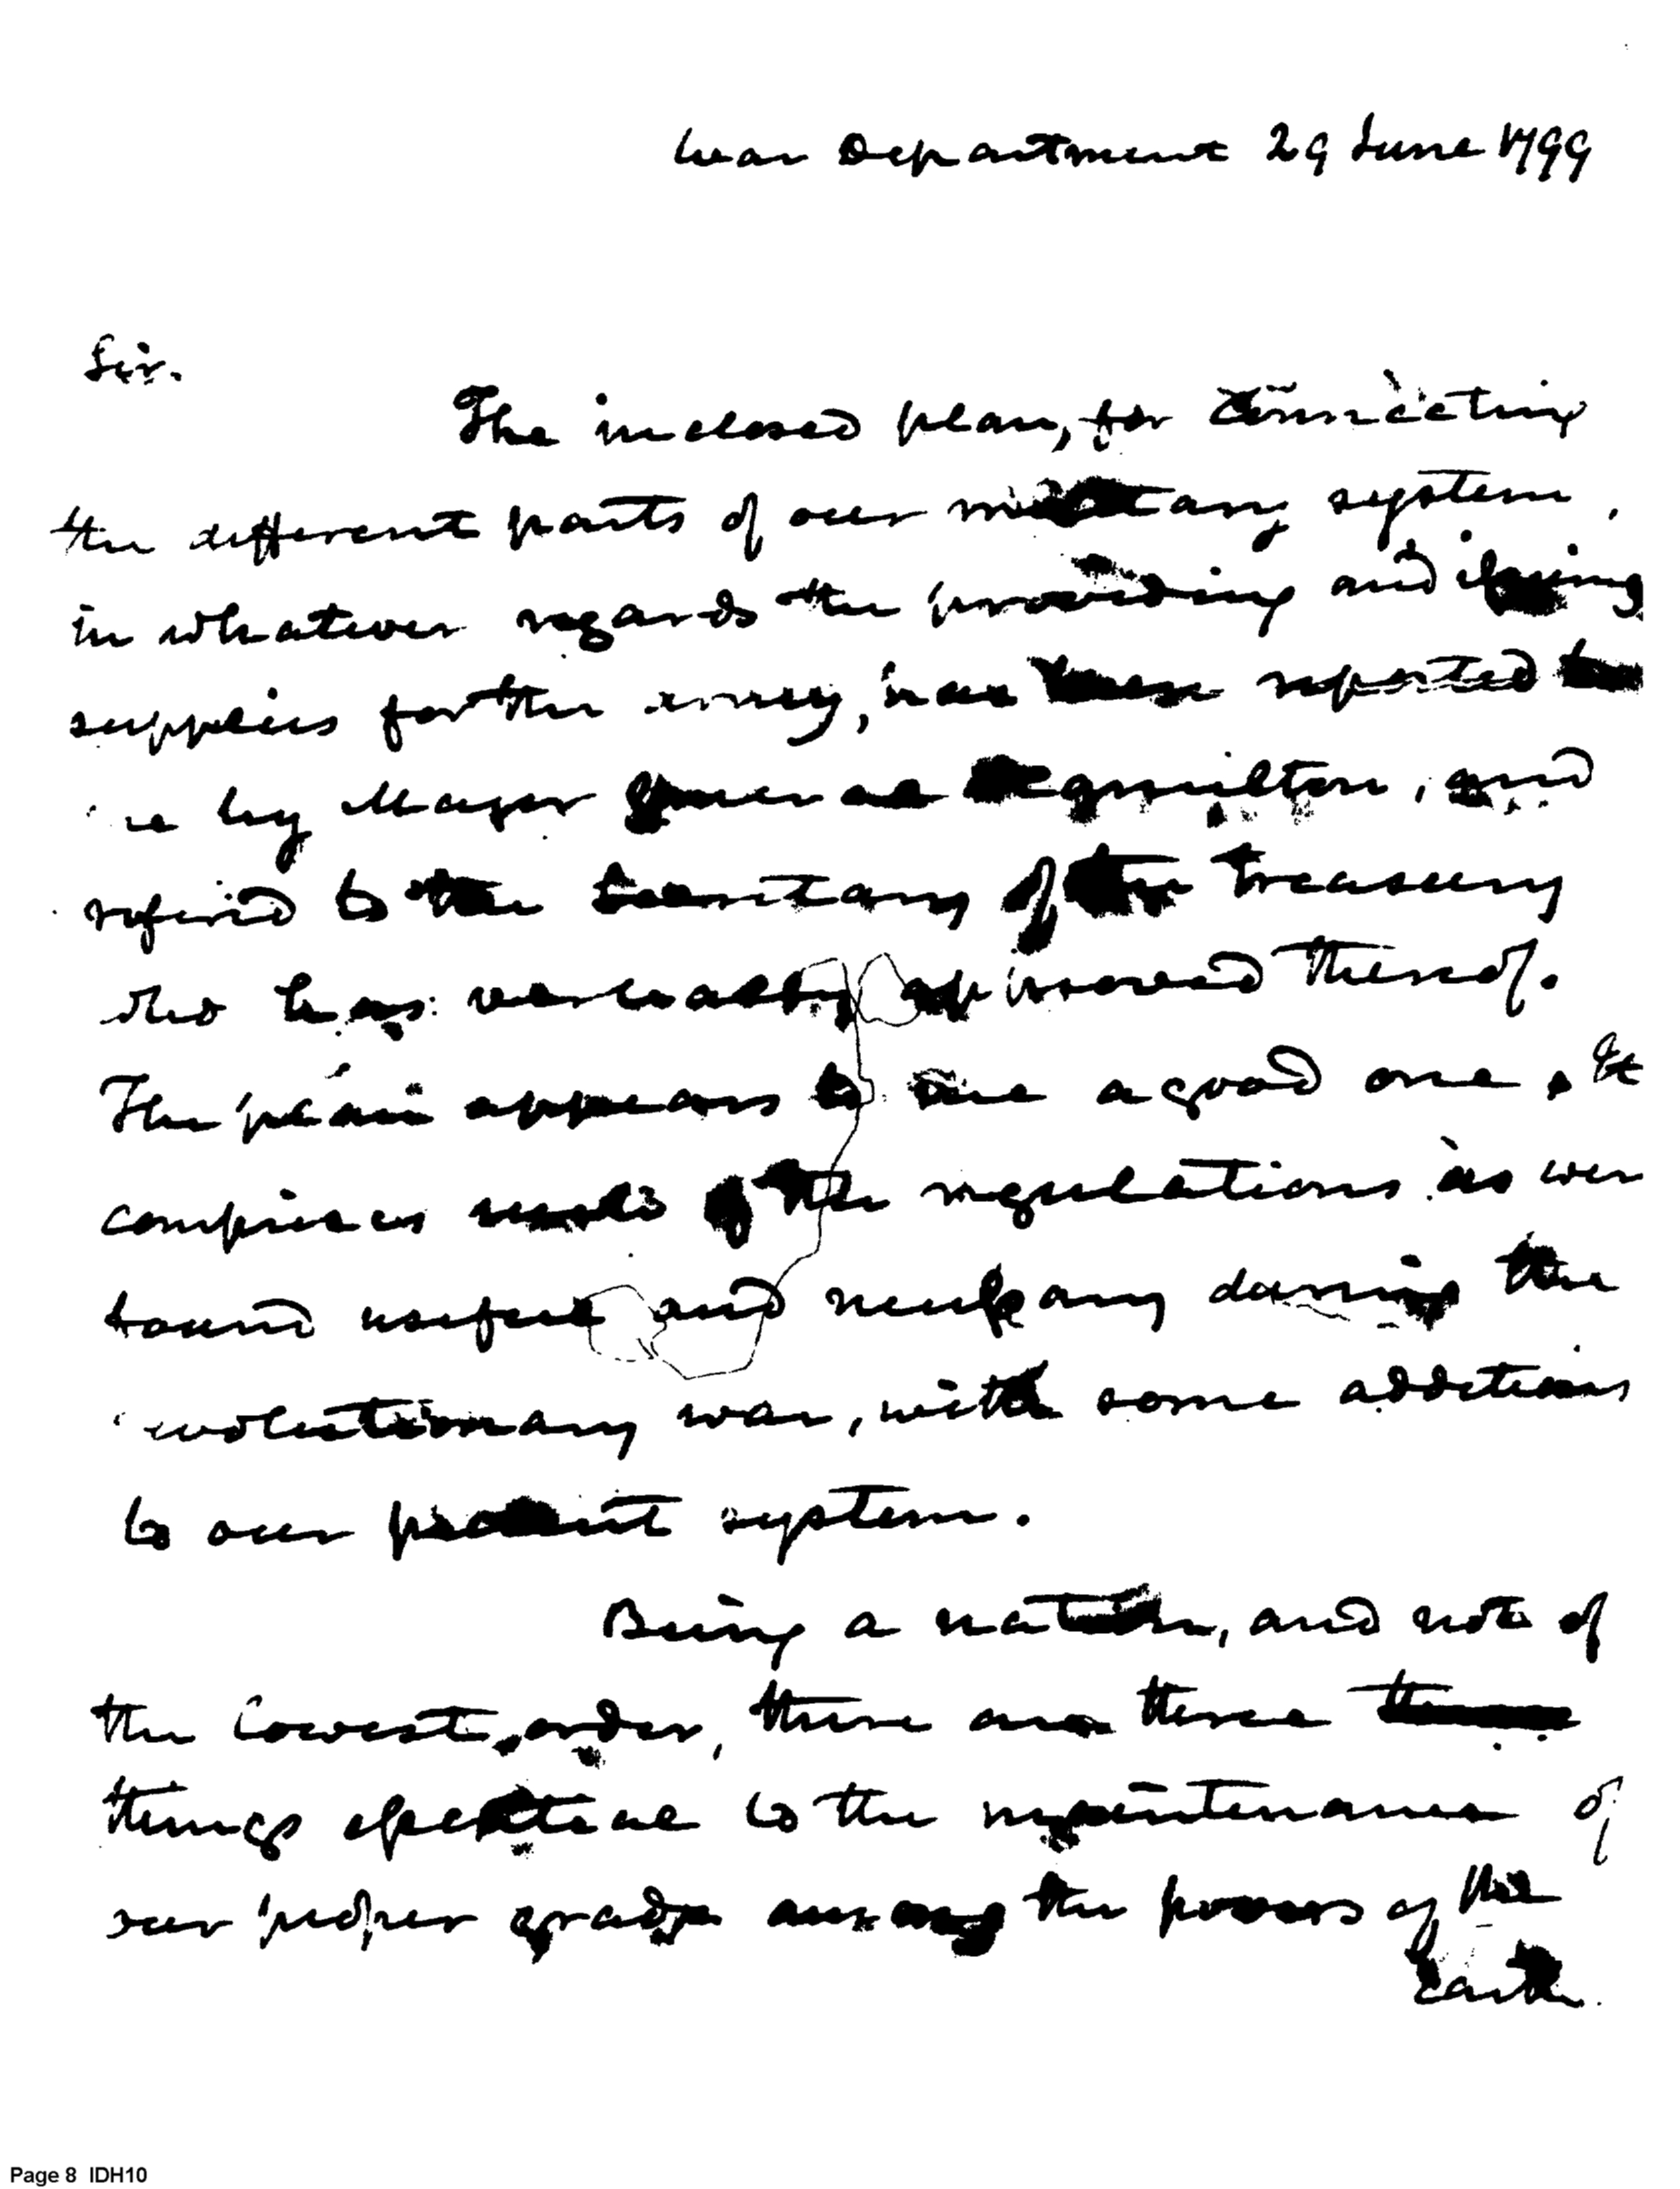 War Department 29 June 1799
Sir.
The inclosed plan, for connecting
the different parts of our military system,
in whatever regards the providing and issuing
supplies for the army, has been reported to
me by Major General Hamilton, and
referred to the Secretary of the Treasury
who has verbally approved thereof.
The plan appears to me a good one. It
comprises such of the regulations as were
found useful and necessary during the
revolutionary war, with some additions
to our present system.
Being a nation, and not of
the lowest order, there are three
things essential to the maintenance of
our proper grade among the powers of the
Earth.
Page 8 IDH10